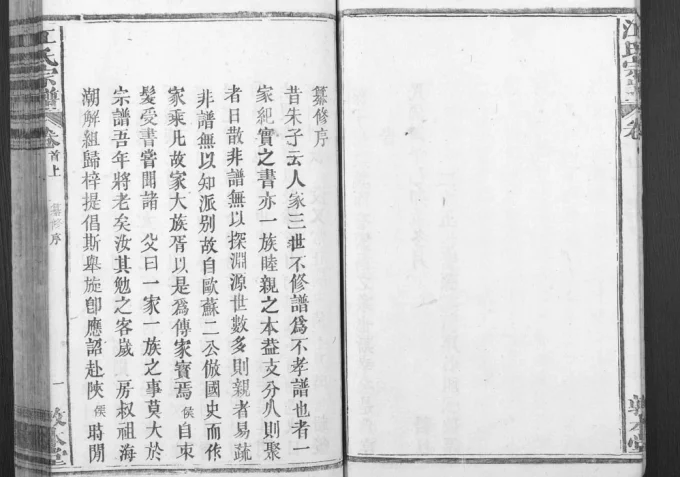 江氏宗譜
卷
敦本堂
纂修序
昔朱子云人家三世不修譜爲不孝譜也者一
家紀實之書亦一族睦親之本葢支分𠂢則聚
者日散非譜無以探淵源世數多則親者易疏
非譜無以知派別故自歐蘇二公倣國史而作
家乘凡故家大族胥以是爲傳家寶焉 俟自束
髮受書嘗聞諸 父曰一家一族之事莫大於
宗譜吾年將老矣汝其勉之客歲 房叔祖海
潮解組歸梓提倡斯舉旋卽應詔赴陝 俟 時閒
江氏宗譜
卷首上
纂修序
一
敦本堂